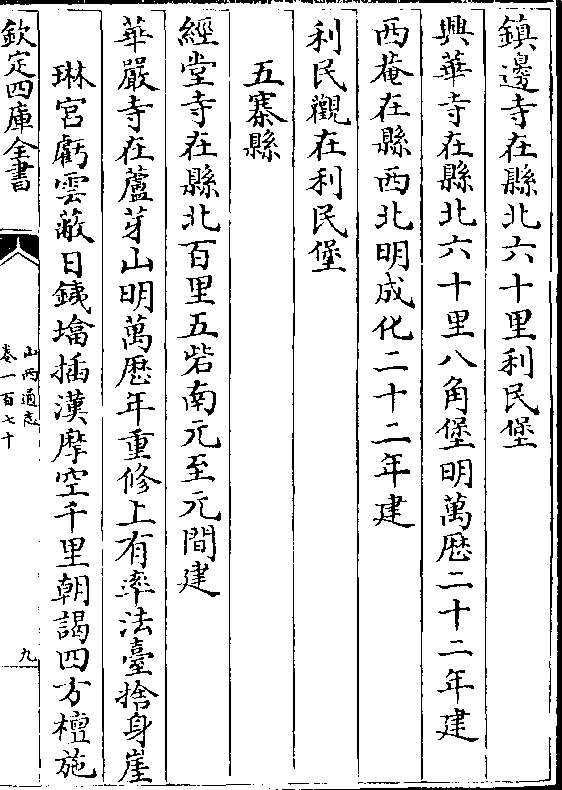 鎮邊寺在縣北六十里利民堡
興華寺在縣北六十里八角堡明萬厯二十二年建
西菴在縣西北明成化二十二年建
利民觀在利民堡
五寨縣
經堂寺在縣北百里五砦南元至元間建
華嚴寺在蘆芽山明萬厯年重修上有率法臺捨身崖
琳宮虧雲蔽日鐵墖插漢摩空千里朝謁四方檀施
欽定四庫全書
山西通志
卷一百七十
九